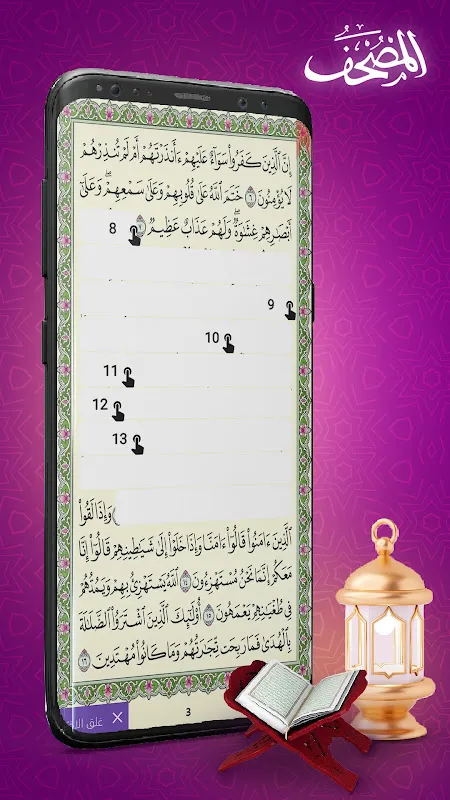 المصحف
إِنَّ ٱلَّذِينَ كَفَرُواْ سَوَآءٌ عَلَيْهِمْ ءَأَنذَرْتَهُمْ أَمْ لَمْ تُنذِرْهُمْ
لَا يُؤْمِنُونَ ٦ خَتَمَ ٱللَّهُ عَلَىٰ قُلُوبِهِمْ وَعَلَىٰ سَمْعِهِمْ ۖ وَعَلَىٰٓ
أَبْصَٰرِهِمْ غِشَٰوَةٌ ۖ وَلَهُمْ عَذَابٌ عَظِيمٌ ٧
8
9
10
11
12
13
وَإِذَا لَقُواْ
ٱلَّذِينَ ءَامَنُواْ قَالُوٓاْ ءَامَنَّا وَإِذَا خَلَوْاْ إِلَىٰ شَيَٰطِينِهِمْ قَالُوٓاْ إِنَّا
مَعَكُمْ إِنَّمَا نَحْنُ مُسْتَهْزِءُونَ ١٤ ٱللَّهُ يَسْتَهْزِئُ بِهِمْ وَيَمُدُّهُمْ
فِى طُغْيَٰنِهِمْ يَعْمَهُونَ ١٥ أُوْلَٰٓئِكَ ٱلَّذِينَ ٱشْتَرَوُاْ ٱلضَّلَٰلَةَ
بِٱلْهُدَىٰ فَمَا رَبِحَت تِّجَٰرَتُهُمْ وَمَا كَانُواْ مُهْتَدِينَ ١٦
3
غلق X